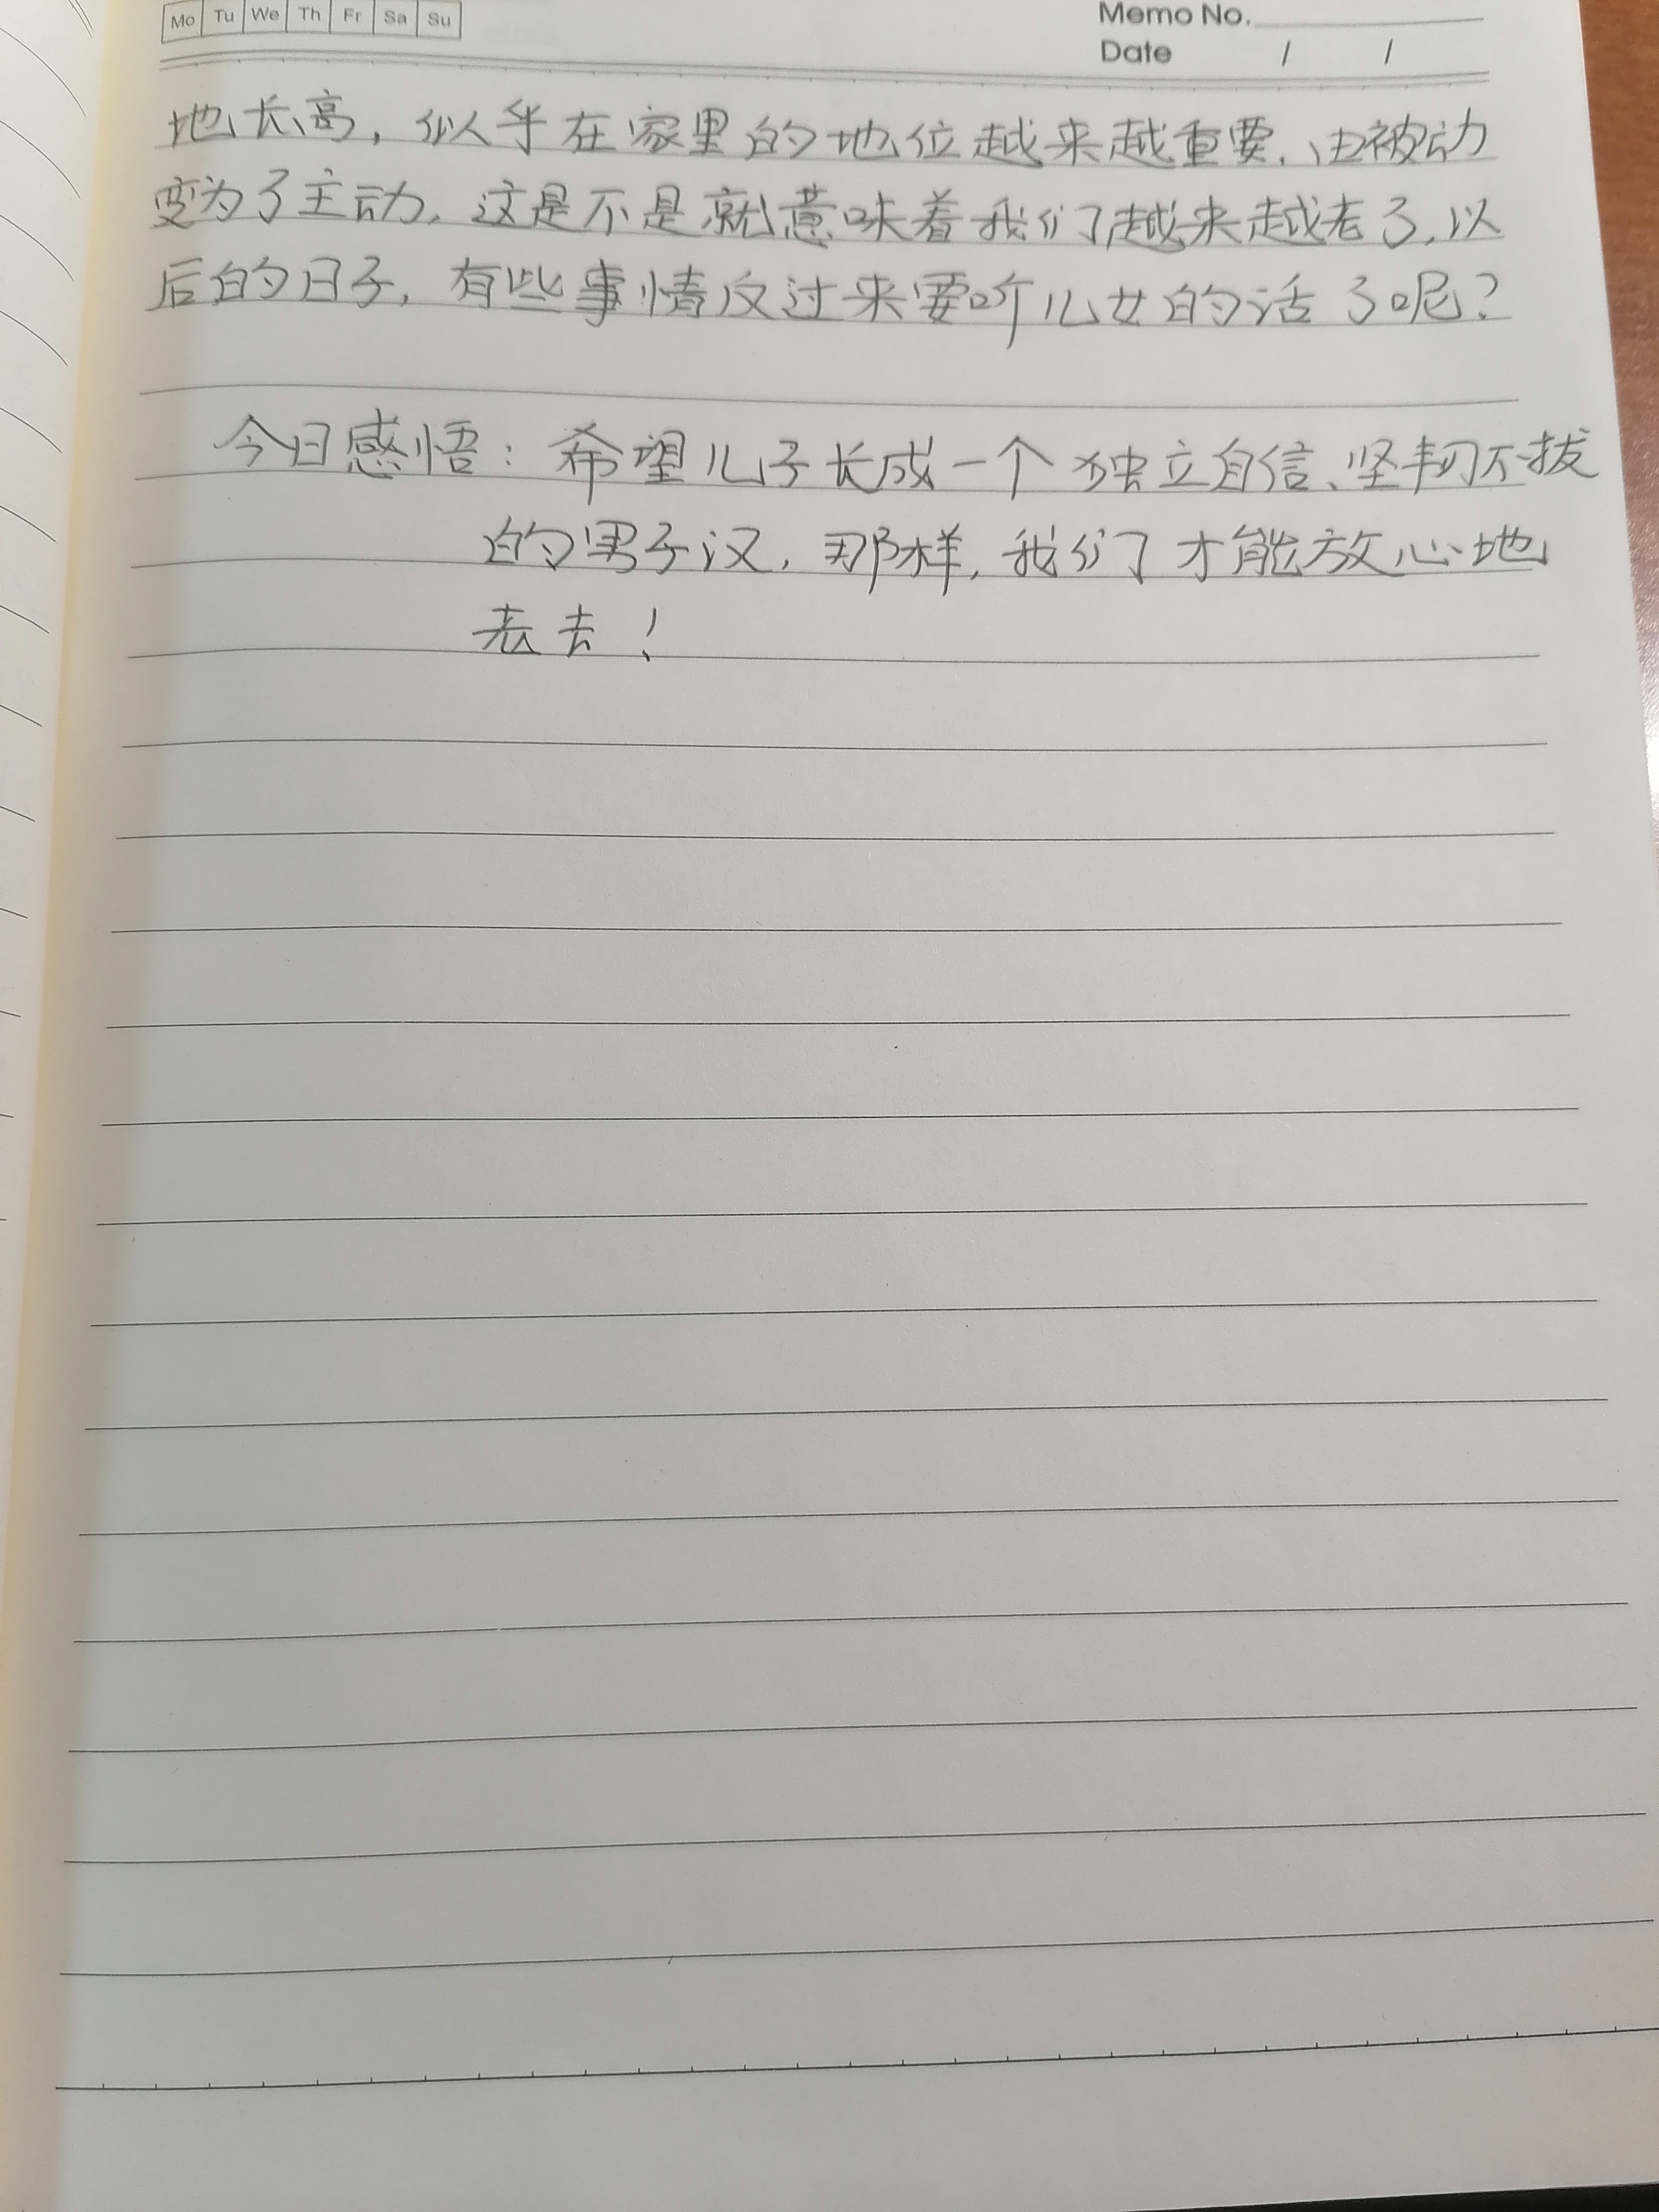 Mo Tu We Th Fr Sa Su
Memo No.
Date / /
地长高，似乎在家里的地位越来越重要，由被动
变为了主动，这是不是就意味着我们越来越老了，以
后的日子，有些事情反过来要听儿女的话了呢？
今日感悟：希望儿子长成一个独立自信、坚韧不拔
的男子汉，那样，我们才能放心地
老去！